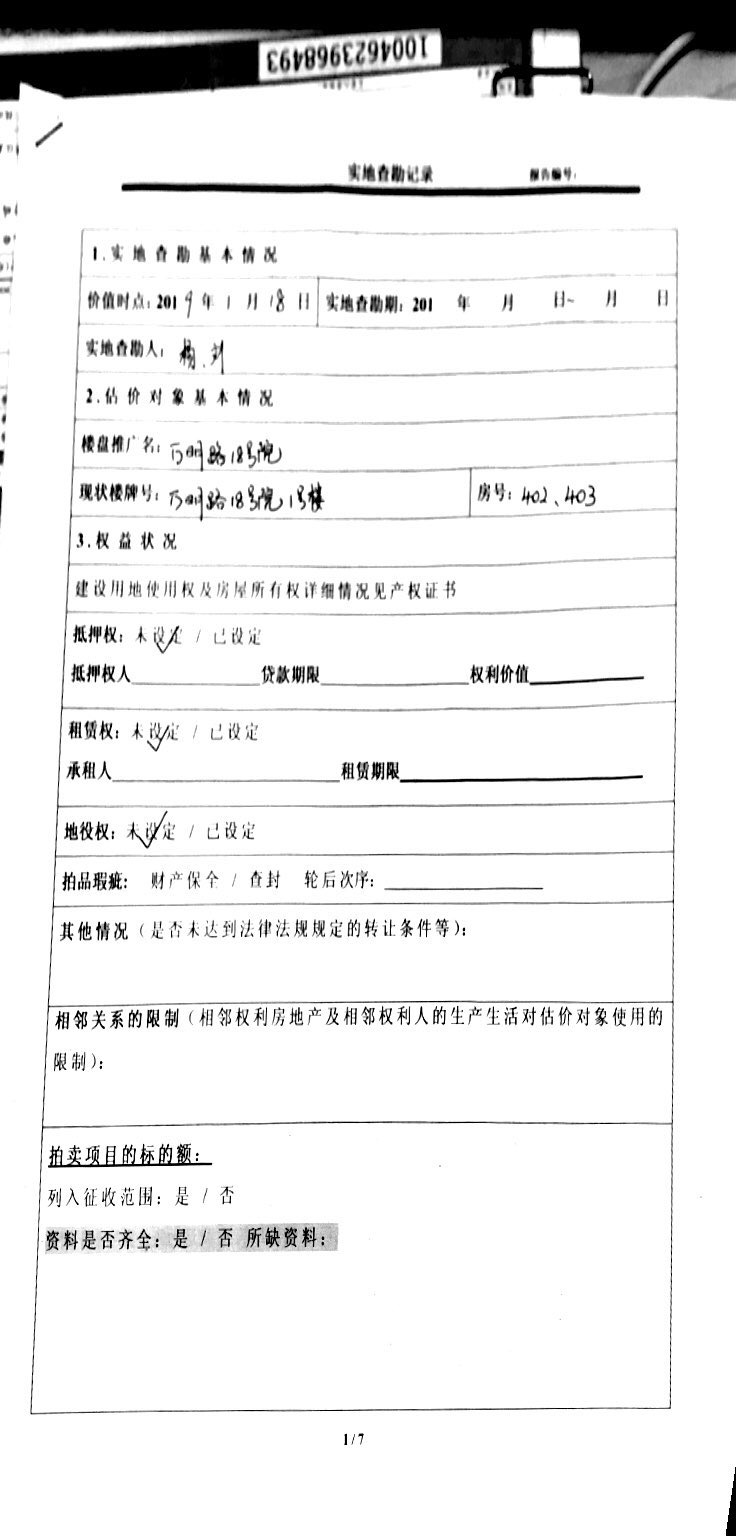 1004623968493
实地查勘记录 报告编号:
1.实地查勘基本情况
价值时点: 2019年1月18日 实地查勘期: 201 年 月 日~ 月 日
实地查勘人: 杨、刘
2.估价对象基本情况
楼盘推广名: 万明路18号院
现状楼牌号: 万明路18号院1号楼 房号: 402、403
3.权益状况
建设用地使用权及房屋所有权详细情况见产权证书
抵押权: 未设定 / 已设定
抵押权人____________贷款期限____________权利价值____________
租赁权: 未设定 / 已设定
承租人____________租赁期限____________
地役权: 未设定 / 已设定
拍品瑕疵: 财产保全 / 查封 轮后次序: ____________
其他情况（是否未达到法律法规规定的转让条件等）:
相邻关系的限制（相邻权利房地产及相邻权利人的生产生活对估价对象使用的
限制）:
拍卖项目的标的额:
列入征收范围: 是 / 否
资料是否齐全: 是 / 否 所缺资料:
1/7